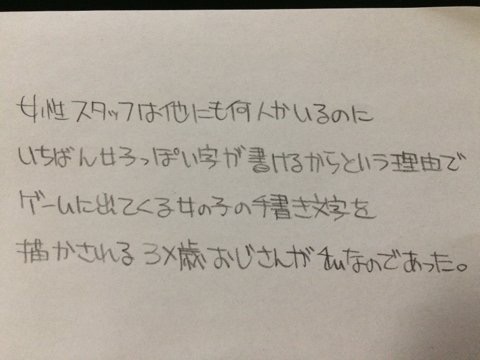 女性スタッフは他にも何人かいるのに
いちばん女子っぽい字が書けるからという理由で
ゲームに出てくる女の子の手書き文字を
描かされる3X歳おじさんが私なのであった。